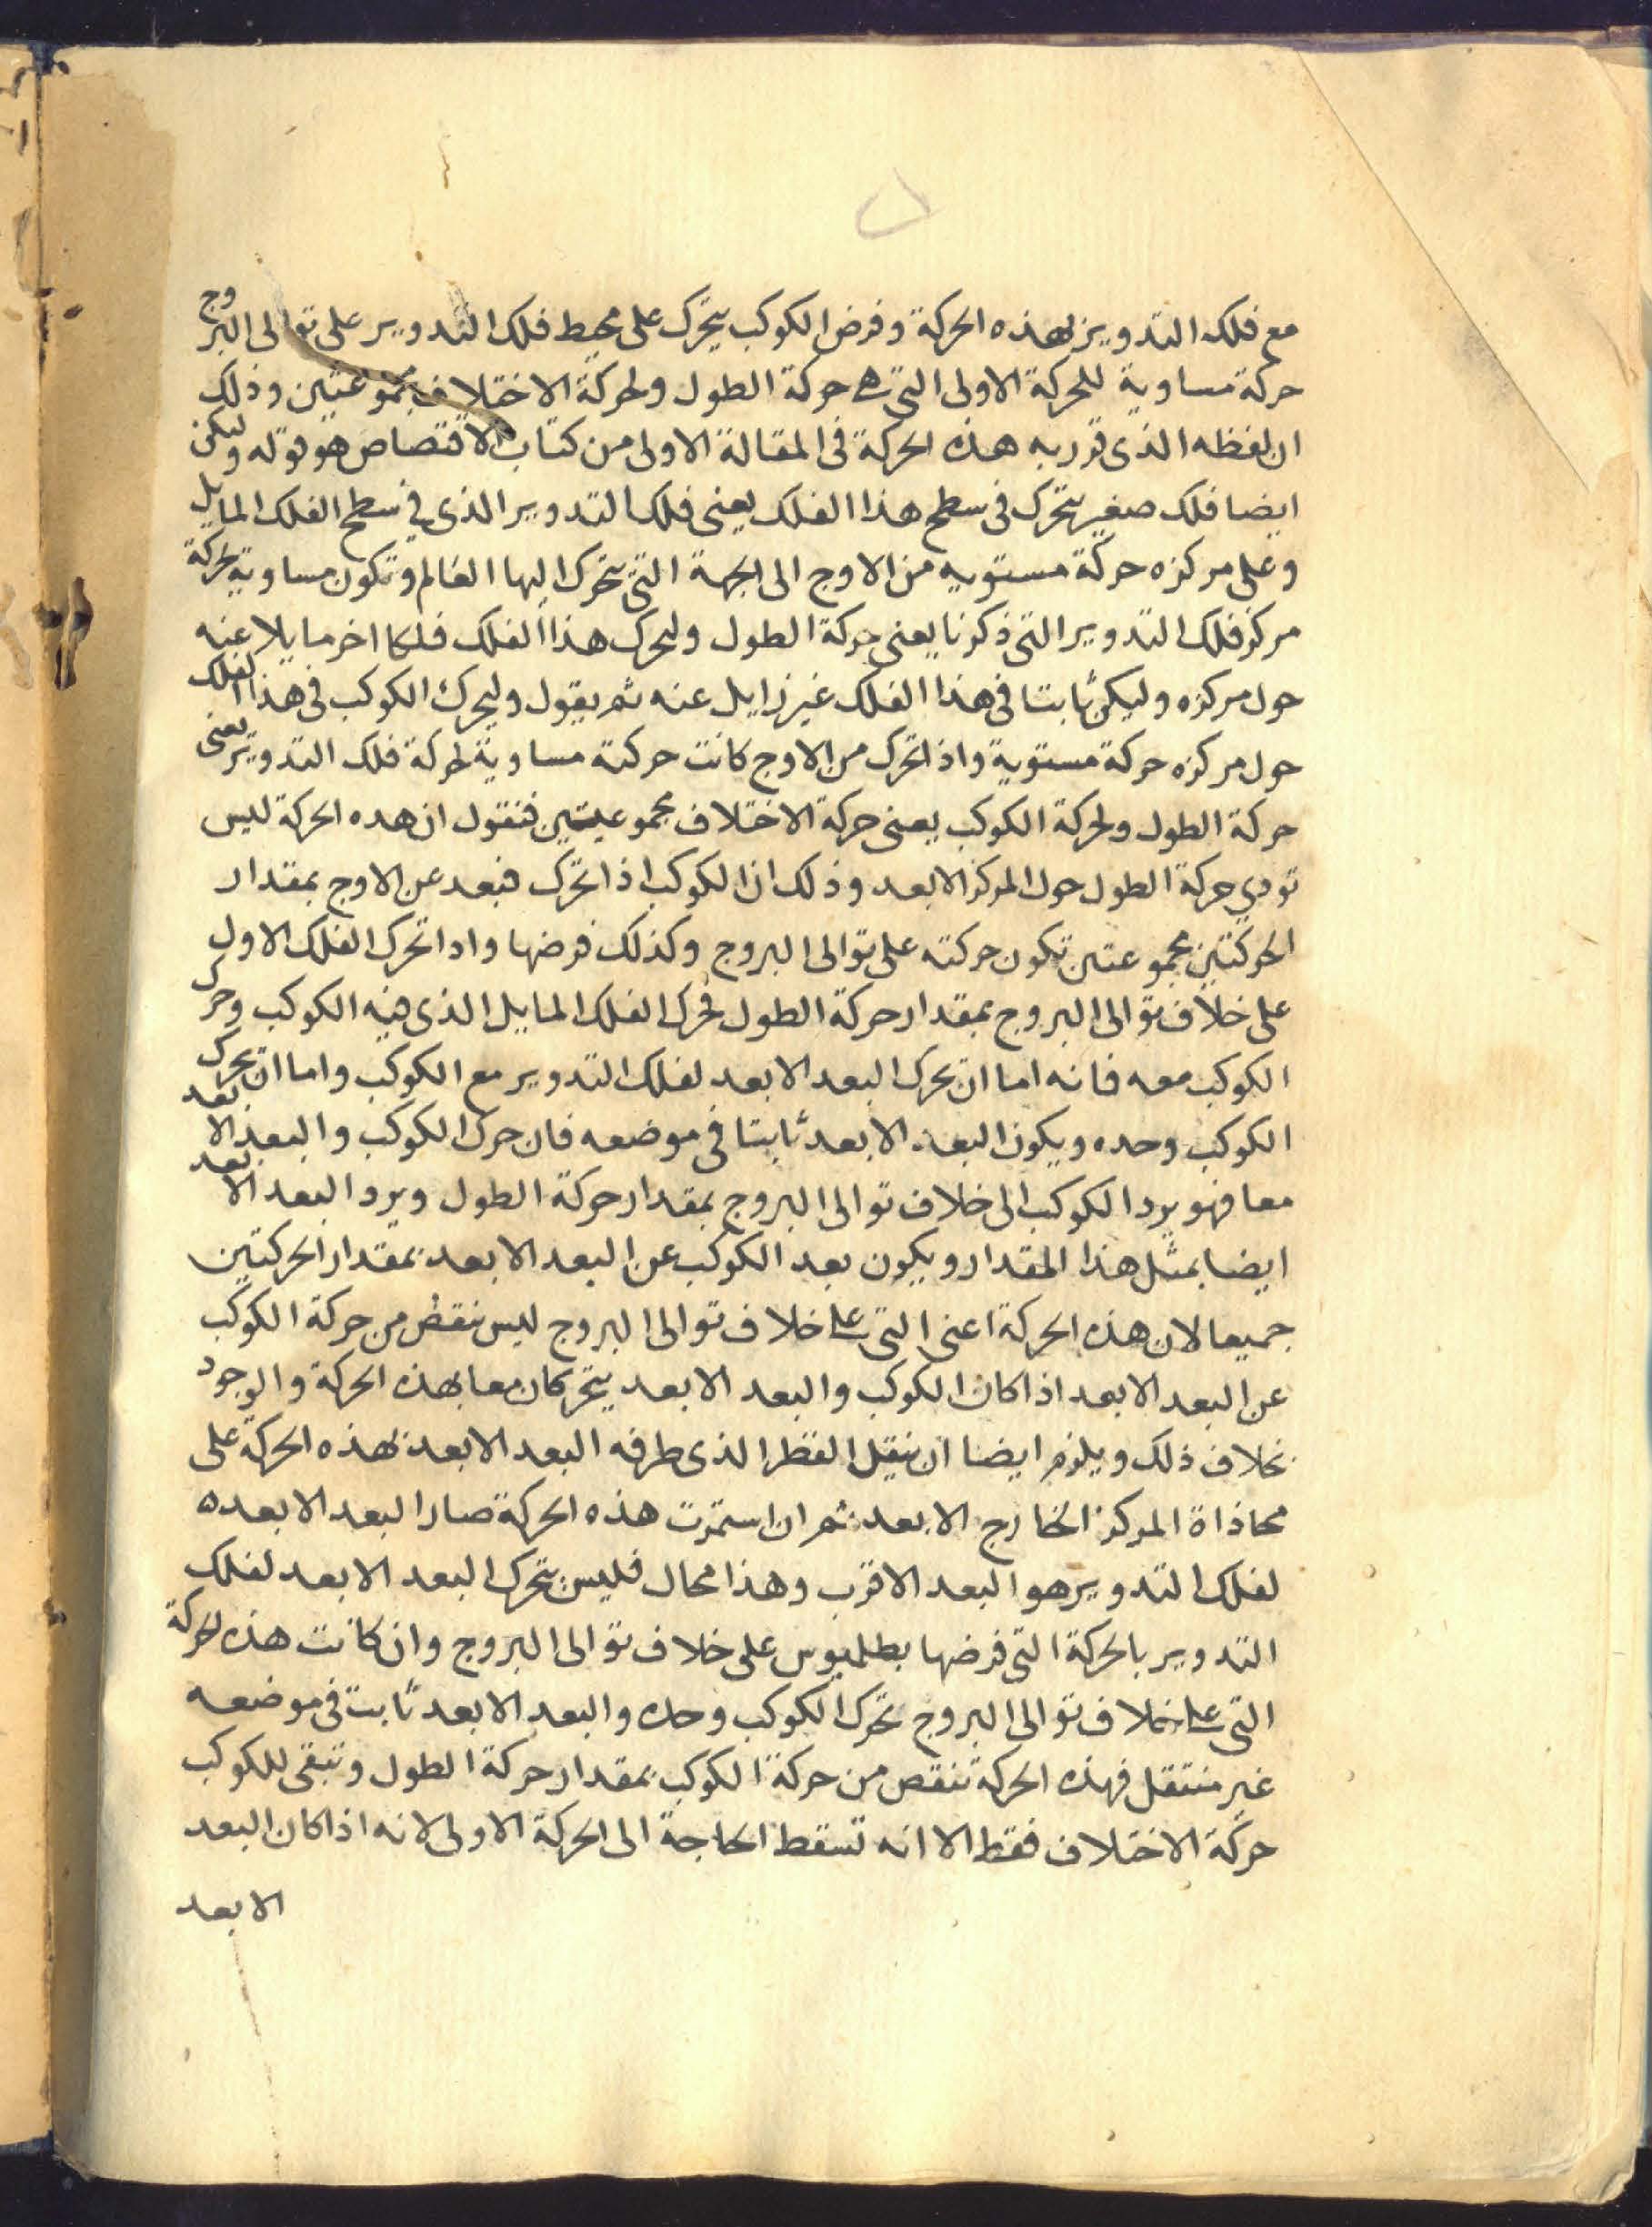 مع فلك التدوير بهذه الحركة وفرض الكوكب يتحرك على محيط فلك التدوير على توالى البروج
حركة مساوية للحركة الاولى التى هى حركة الطول ولحركة الاختلاف مجموعتين وذلك
ان لفظه الذى قرر به هذه الحركة فى المقالة الاولى من كتاب الاقتصاص هو قوله وليكن
ايضا فلك صغير يتحرك فى سطح هذا الفلك يعنى فلك التدوير الذى فى سطح الفلك المايل
وعلى مركزه حركة مستويه من الاوج الى الجهة التى يتحرك اليها العالم وتكون مساوية لحركة
مركز فلك التدوير التى ذكرنا يعنى حركة الطول وليحرك هذا الفلك فلكا اخر مايلا عنه
حول مركزه وليكن ثابتا فى هذا الفلك غير زايل عنه ثم يقول وليحرك الكوكب فى هذا الفلك
حول مركزه حركة مستوية واذا تحرك من الاوج كانت حركته مساوية لحركة فلك التدوير يعنى
حركة الطول ولحركة الكوكب يعنى حركة الاختلاف مجموعيتين فنقول ان هده الحركة ليس
تودي حركة الطول حول المركز الابعد وذلك ان الكوكب اذا تحرك فبعد عن الاوج بمقدار
الحركتين مجموعتين تكون حركته على توالى البروج وكذلك فرضها واذا تحرك الفلك الاول
على خلاف توالى البروج بمقدار حركة الطول فحرك الفلك المايل الذى فيه الكوكب وحرك
الكوكب معه فانه اما ان يحرك البعد الابعد لفلك التدوير مع الكوكب واما ان يحرك
الكوكب وحده ويكون البعد الابعد ثابتا فى موضعه فان حرك الكوكب والبعد الابعد
معا فهو يرد الكوكب الى خلاف توالى البروج بمقدار حركة الطول ويرد البعد الابعد
ايضا بمثل هذا المقدار ويكون بعد الكوكب عن البعد الابعد بمقدار الحركتين
جميعا لان هذه الحركة اعنى التى على خلاف توالى البروج ليس تنقص من حركة الكوكب
عن البعد الابعد اذا كان الكوكب والبعد الابعد يتحركان معا بهذه الحركة والوجود
بخلاف ذلك ويلزم ايضا ان ينقل القطر الذى طرفه البعد الابعد بهذه الحركة على
محاذاة المركز الخارج الابعد ثم ان استمرت هذه الحركة صار البعد الابعده
لفلك التدوير هو البعد الاقرب وهذا محال فليس يتحرك البعد الابعد لفلك
التدوير بالحركة التى فرضها بطلميوس على خلاف توالى البروج وان كانت هذه الحركة
التى على خلاف توالى البروج تحرك الكوكب وحده والبعد الابعد ثابت فى موضعه
غير منتقل فهذه الحركة تنقص من حركة الكوكب بمقدار حركة الطول وتبقى للكوكب
حركة الاختلاف فقط الا انه تسقط الحاجة الى الحركة الاولى لانه اذا كان البعد
الابعد